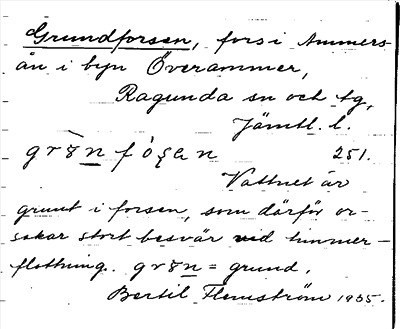 Grundforsen, fors i Ammers-
ån i byn Överammer,
Ragunda sn och tg,
Jämtl. l.
grȣn fȯʂan 251.
Vattnet är
grunt i forsen, som därför or-
sakar stort besvär vid timmer-
flottning. grȣn = grund.
Bertil Flemström 1935.